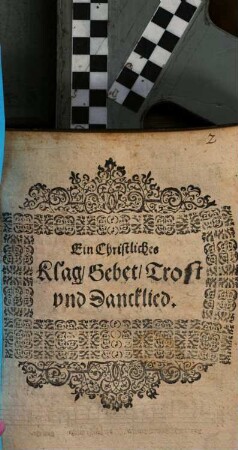 2
Ein Christliches
Klag/ Gebet/ Trost
vnd Dancklied.